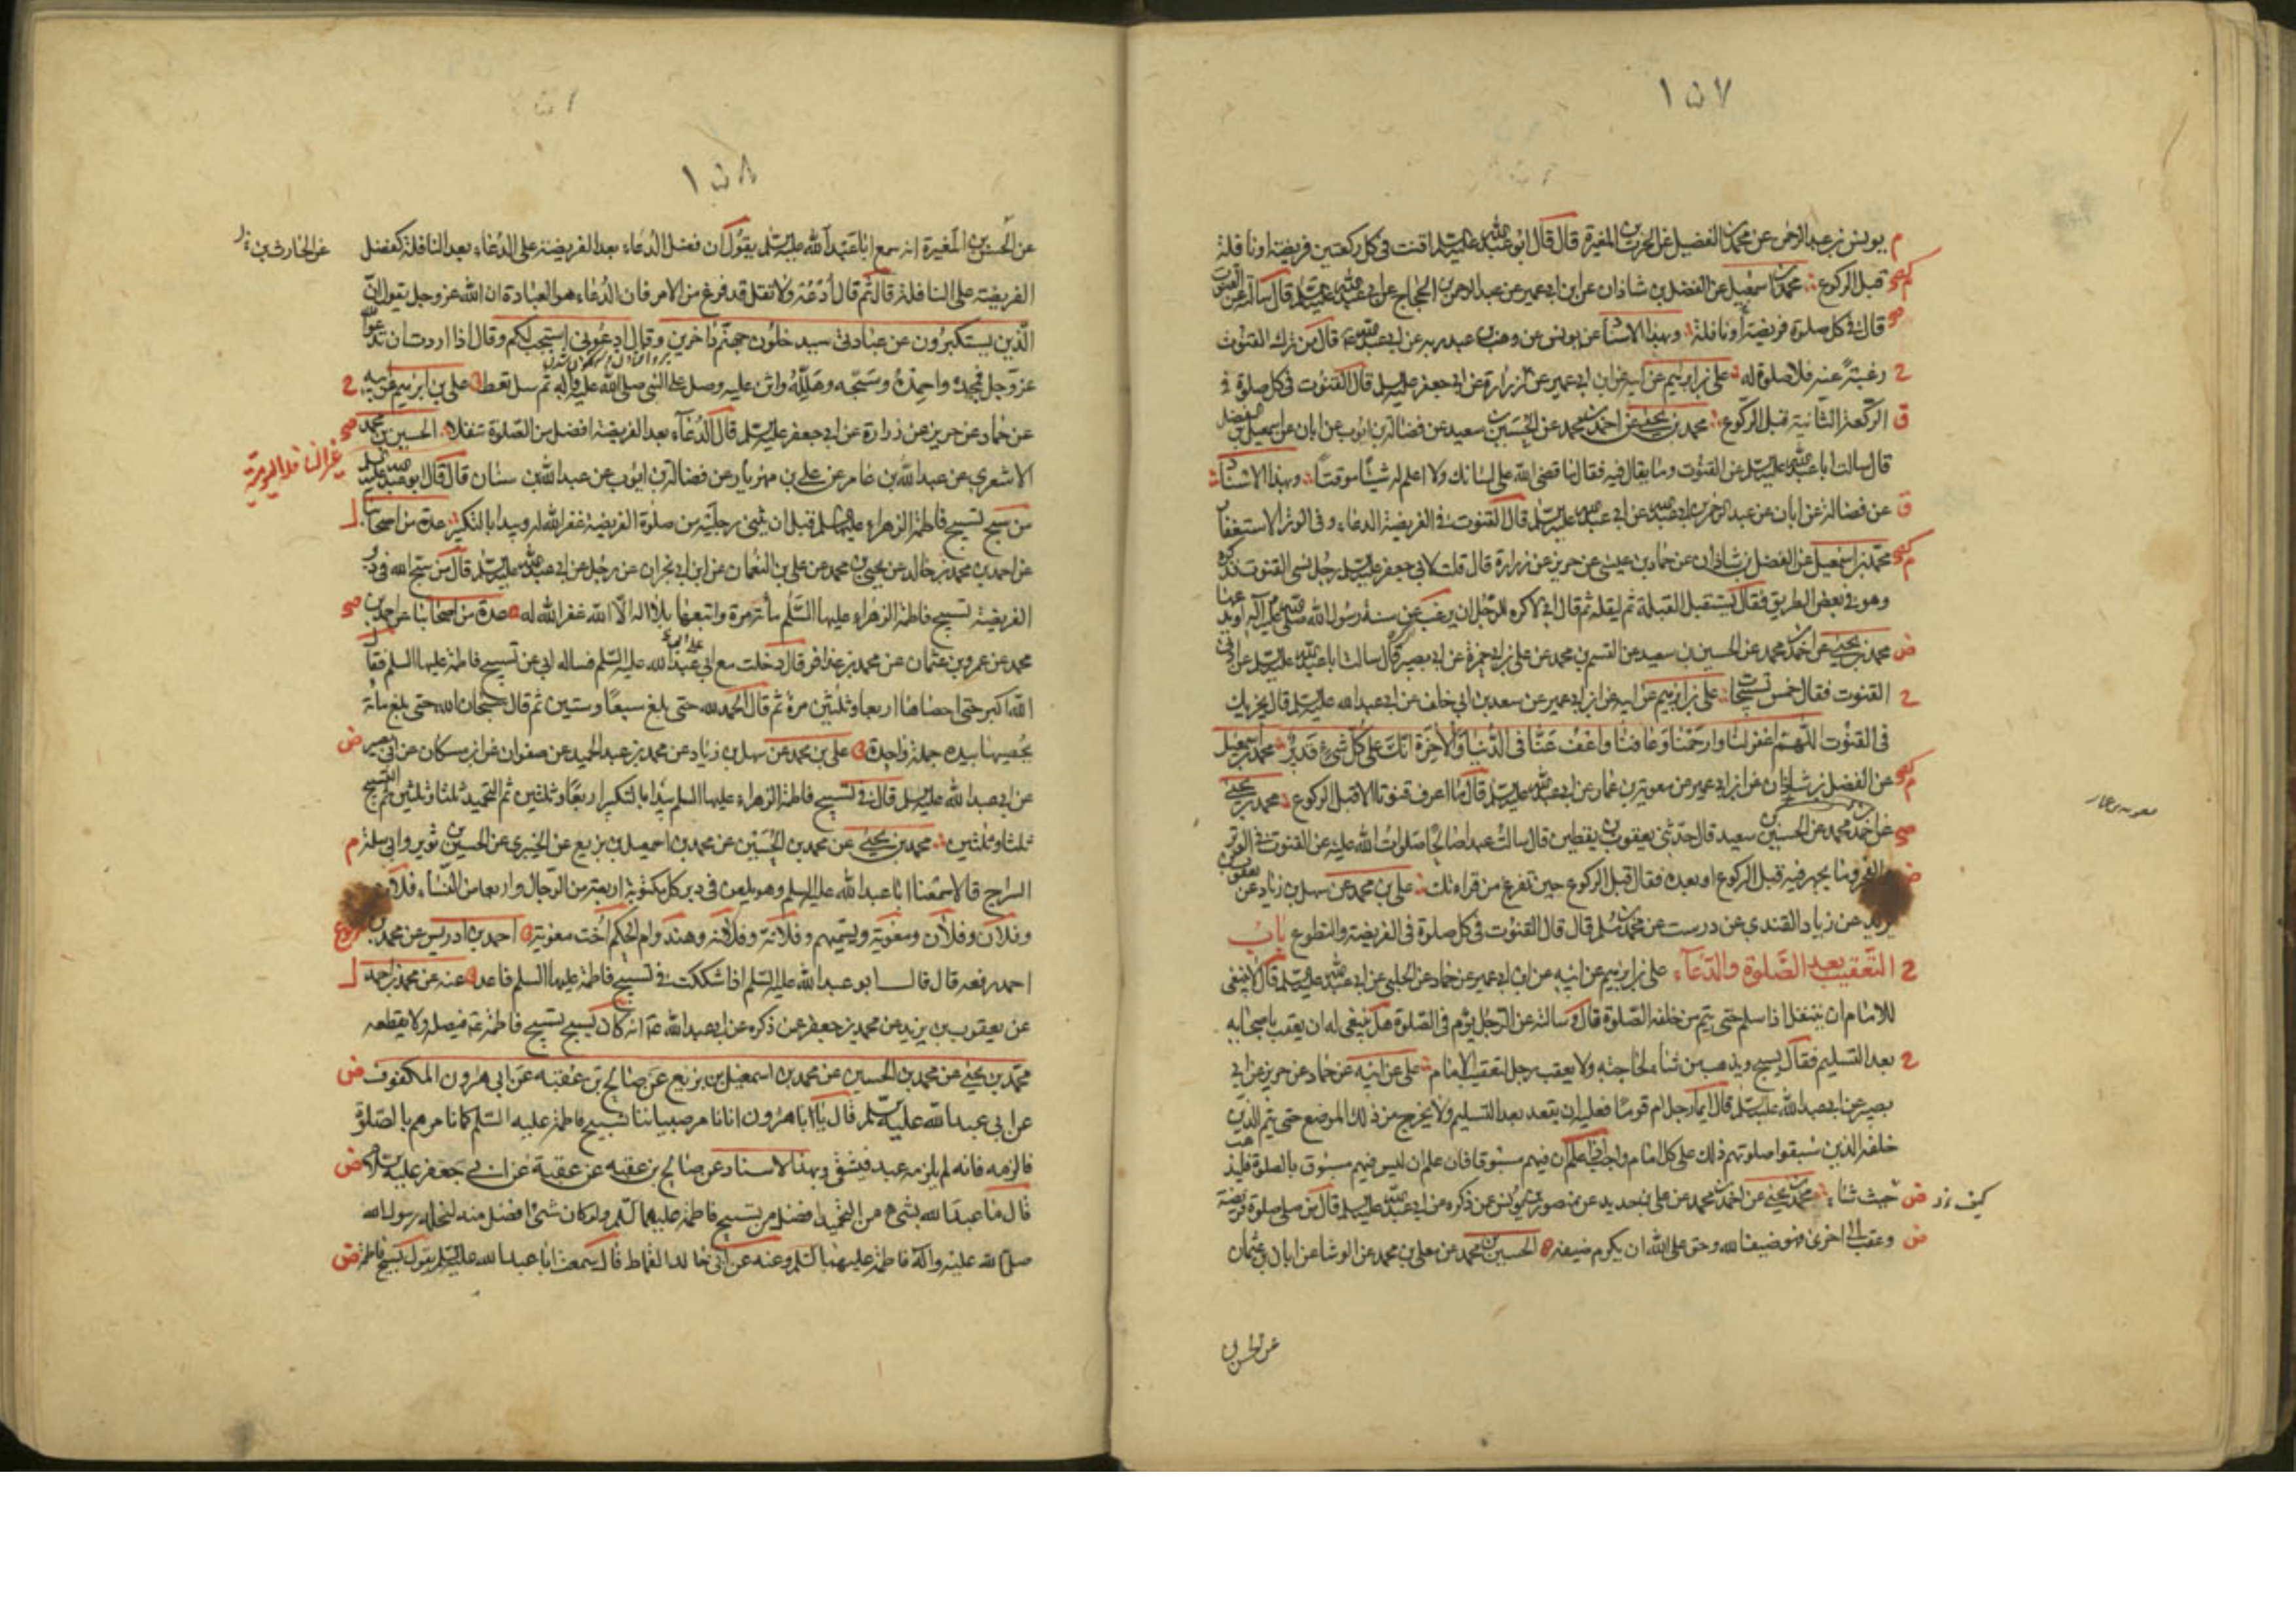 ١٥٧
يونس بن عبد الرحمن عن محمد بن الفضيل عن الحرث بن المغيرة قال قال ابو عبد الله عليه السلم اقنت في كل ركعتين فريضة او نافلة
قبل الركوع محمد بن اسمعيل عن الفضل بن شاذان عن ابن ابي عمير عن عبد الرحمن بن الحجاج عن ابي عبد الله عليه السلم قال سالته عن القنوت
قال في كل صلوة فريضة او نافلة وبهذا الاسناد عن يونس عن وهب بن عبد ربه عن ابي عبد الله قال من ترك القنوت
رغبة عنه فلا صلوة له علي بن ابرهيم عن ابيه عن ابن ابي عمير عن زرارة عن ابي جعفر عليه السلم قال القنوت في كل صلوة في
الركعة الثانية قبل الركوع محمد بن يحيى عن احمد بن محمد عن الحسين بن سعيد عن فضالة بن ايوب عن ابان عن اسمعيل بن الفضل
قال سالت ابا عبد الله عليه السلم عن القنوت وما يقال فيه فقال ما قضى الله على لسانك ولا اعلم له شيئا موقتا وبهذا الاسناد
عن فضالة عن ابان عن عبد الرحمن بن ابي عبد الله عن ابي عبد الله عليه السلم قال القنوت في الفريضة الدعاء وفي الوتر الاستغفار
محمد بن اسمعيل عن الفضل بن شاذان عن حماد بن عيسى عن حريز عن زرارة قال قلت لابي جعفر عليه السلم رجل نسي القنوت فذكره
وهو في بعض الطريق فقال يستقبل القبلة ثم ليقله ثم قال اني لاكره للرجل ان يرغب عن سنة رسول الله صلى الله عليه وآله او يدعها
محمد بن يحيى عن احمد بن محمد عن الحسين بن سعيد عن القسم بن محمد عن علي بن ابي حمزة عن ابي بصير قال سالت ابا عبد الله عليه السلم عن ادنى
القنوت فقال خمس تسبيحات علي بن ابرهيم عن ابيه عن ابن ابي عمير عن سعد بن ابي خلف عن ابي عبد الله عليه السلم قال يجزيك
في القنوت اللهم اغفر لنا وارحمنا وعافنا واعف عنا في الدنيا والآخرة انك على كل شيء قدير محمد بن اسمعيل
عن الفضل بن شاذان عن ابن ابي عمير عن معوية بن عمار عن ابي عبد الله عليه السلم قال ما اعرف قنوتا الا قبل الركوع محمد بن يحيى
عن احمد بن محمد عن الحسين بن سعيد قال حدثني يعقوب بن يقطين قال سالت عبدا صالحا صلوات الله عليه عن القنوت في الوتر
والفجر وما يجهر فيه قبل الركوع او بعده فقال قبل الركوع حين تفرغ من قراءتك علي بن محمد عن سهل بن زياد عن يعقوب بن
يزيد عن زياد القندي عن درست عن محمد بن مسلم قال قال القنوت في كل صلوة في الفريضة والتطوع باب
التعقيب بعد الصلوة والدعاء علي بن ابرهيم عن ابيه عن ابن ابي عمير عن حماد عن الحلبي عن ابي عبد الله عليه السلم قال لا ينبغي
للامام ان يتنفل اذا سلم حتى يتم من خلفه الصلوة قال وسالته عن الرجل يؤم في الصلوة هل ينبغي له ان يعقب باصحابه
بعد التسليم فقال يسبح ويذهب من شاء لحاجته ولا يعقب رجل لتعقيب الامام علي عن ابيه عن حماد عن حريز عن ابي
بصير عن ابي عبد الله عليه السلم قال ايما رجل ام قوما فعليه ان يقعد بعد التسليم ولا يخرج من ذلك الموضع حتى يتم الذين
خلفه الذين سبقوا صلوتهم ذلك على كل امام واجب اذا علم ان فيهم مسبوقا فان علم ان ليس فيهم مسبوق بالصلوة فليذهب
حيث شاء محمد بن يحيى عن احمد بن محمد عن علي بن حديد عن منصور بن يونس عن ذكره عن ابي عبد الله عليه السلم قال من صلى صلوة فريضة
وعقب الى اخرى فهو ضيف الله وحق على الله ان يكرم ضيفه الحسين بن محمد عن معلى بن محمد عن الوشا عن ابان بن عثمان
عن الحسن بن
١٥٨
عن الحسن بن المغيرة انه سمع ابا عبد الله عليه السلم يقول ان فضل الدعاء بعد الفريضة على الدعاء بعد النافلة كفضل
الفريضة على النافلة قال ثم قال ادعه ولا تقل قد فرغ من الامر فان الدعاء هو العبادة ان الله عز وجل يقول ان
الذين يستكبرون عن عبادتي سيدخلون جهنم داخرين وقال ادعوني استجب لكم وقال اذا اردت ان تدعو الله
عز وجل فمجده واحمده وسبحه وهلله واثن عليه وصل على النبي صلى الله عليه وآله ثم سل تعط علي بن ابرهيم عن ابيه
عن حماد عن حريز عن زرارة عن ابي جعفر عليه السلم قال الدعاء بعد الفريضة افضل من الصلوة تنفلا الحسين بن محمد
الاشعري عن عبد الله بن عامر عن علي بن مهزيار عن فضالة بن ايوب عن عبد الله بن سنان قال قال ابو عبد الله عليه السلم
من سبح تسبيح فاطمة الزهراء عليها السلم قبل ان يثني رجليه من صلوة الفريضة غفر الله له ويبدا بالتكبير عدة من اصحابنا
عن احمد بن محمد بن خالد عن يحيى بن محمد عن علي بن النعمان عن ابن ابي نجران عن رجل عن ابي عبد الله عليه السلم قال من سبح الله في دبر
الفريضة تسبيح فاطمة الزهراء عليها السلم مائة مرة واتبعها بلا اله الا الله غفر الله له عدة من اصحابنا عن احمد بن
محمد عن عمرو بن عثمان عن محمد بن عذافر قال دخلت مع ابي على ابي عبد الله عليه السلم فساله ابي عن تسبيح فاطمة عليها السلم فقال
الله اكبر حتى احصاها اربعا وثلثين مرة ثم قال الحمد لله حتى بلغ سبعا وستين ثم قال سبحان الله حتى بلغ مائة
يحصيها بيده جملة واحدة علي بن محمد عن سهل بن زياد عن محمد بن عبد الحميد عن صفوان عن ابن مسكان عن ابي بصير
عن ابي عبد الله عليه السلم قال في تسبيح فاطمة الزهراء عليها السلم يبدا بالتكبير اربعا وثلثين ثم التحميد ثلثا وثلثين ثم التسبيح
ثلثا وثلثين محمد بن يحيى عن محمد بن الحسين عن محمد بن اسمعيل بن بزيع عن الخيبري عن الحسين بن ثوير وابي سلمة
السراج قالا سمعنا ابا عبد الله عليه السلم وهو يلعن في دبر كل مكتوبة اربعة من الرجال واربعا من النساء فلان
وفلان وفلان ومعوية ويسميهم وفلانة وفلانة وهند وام الحكم اخت معوية احمد بن ادريس عن محمد بن
احمد رفعه قال قال ابو عبد الله عليه السلم اذا شككت في تسبيح فاطمة عليها السلم فاعد عنه عن محمد بن احمد
عن يعقوب بن يزيد عن محمد بن جعفر عن ذكره عن ابي عبد الله انه كان يسبح تسبيح فاطمة فيصله ولا يقطعه
محمد بن يحيى عن محمد بن الحسين عن محمد بن اسمعيل بن بزيع عن صالح بن عقبة عن ابي هرون المكفوف
عن ابي عبد الله عليه السلم قال يا ابا هرون انا نامر صبياننا بتسبيح فاطمة عليها السلم كما نامرهم بالصلوة
فالزمه فانه لم يلزمه عبد فيشقى وبهذا الاسناد عن صالح بن عقبة عن عقبة عن ابي جعفر عليه السلم
قال ما عبد الله بشيء من التحميد افضل من تسبيح فاطمة عليها السلم ولو كان شيء افضل منه لنحله رسول الله
صلى الله عليه وآله فاطمة عليها السلم وعنه عن ابي خالد القماط قال سمعت ابا عبد الله عليه السلم يقول تسبيح فاطمة